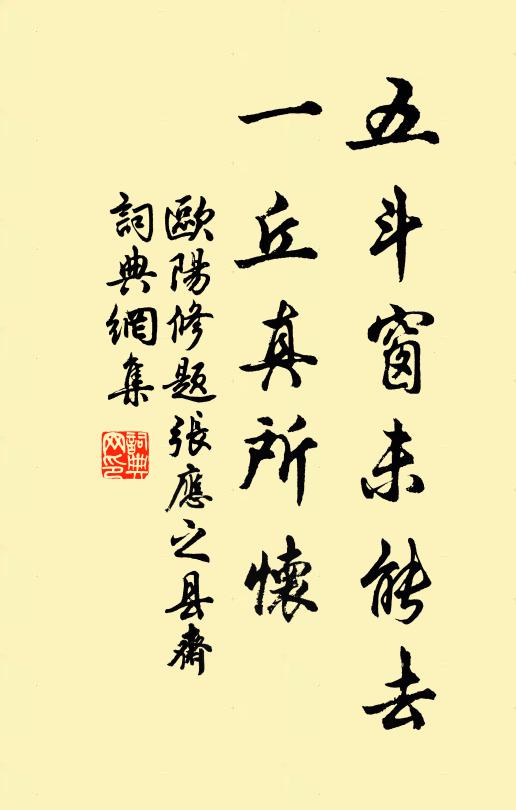 五斗窗未能去
一丘真所懷
歐陽修題張應之县齋
詞典網集
詞典
网印